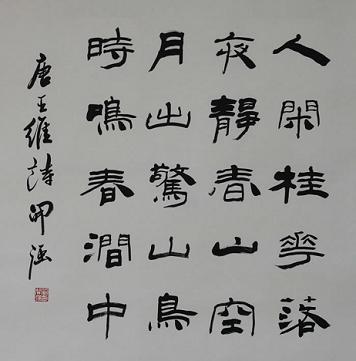 人閑桂華落
夜靜春山空
月出驚山鳥
時鳴春澗中
唐王維詩